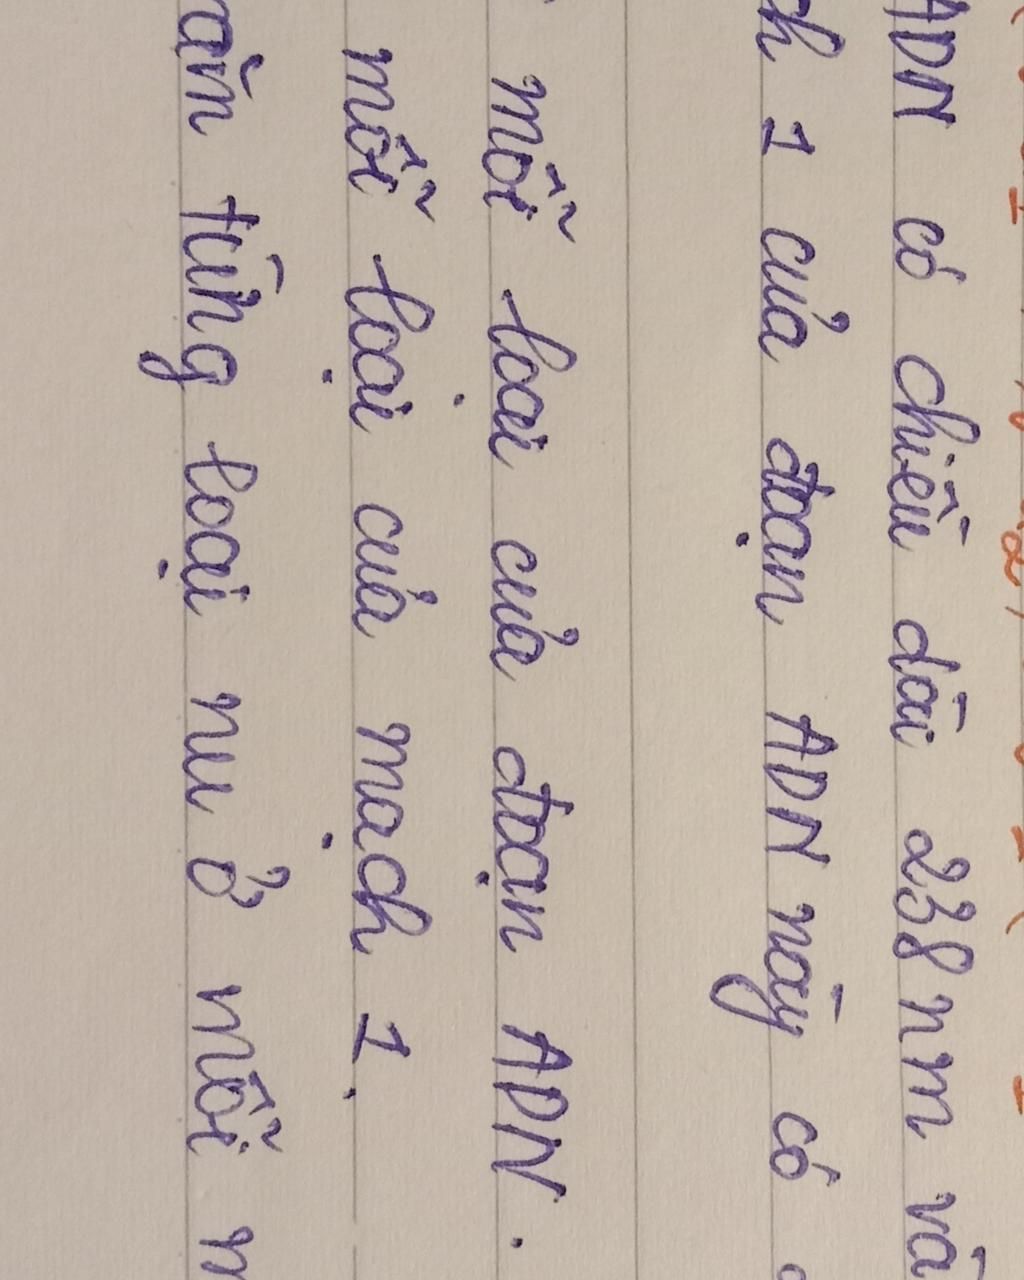 ADN có chiều dài 238 nm và
ch 1 của đoạn ADN này có
mỗi loại của đoạn ADN.
mỗi loại của mạch 1.
từng loại nu ở mỗi